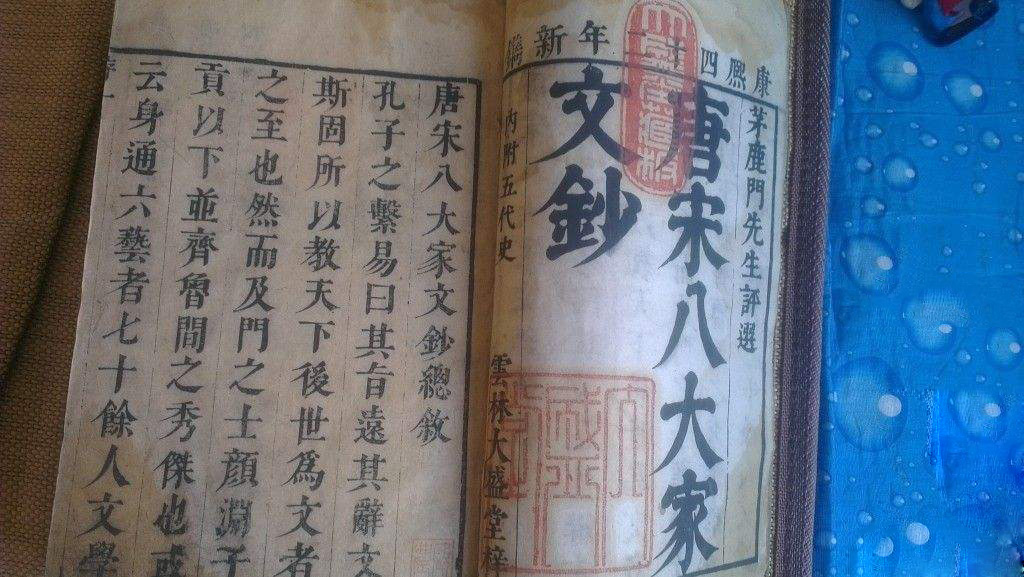 康熙四十二年新鐫
茅鹿門先生評選
唐宋八大家
文鈔
內附五代史
雲林大盛堂梓
唐宋八大家文鈔總敘
孔子之繫易曰其旨遠其辭文
斯固所以教天下後世為文者
之至也然而及門之士顏淵子
貢以下並齊魯間之秀傑也或
云身通六藝者七十餘人文學